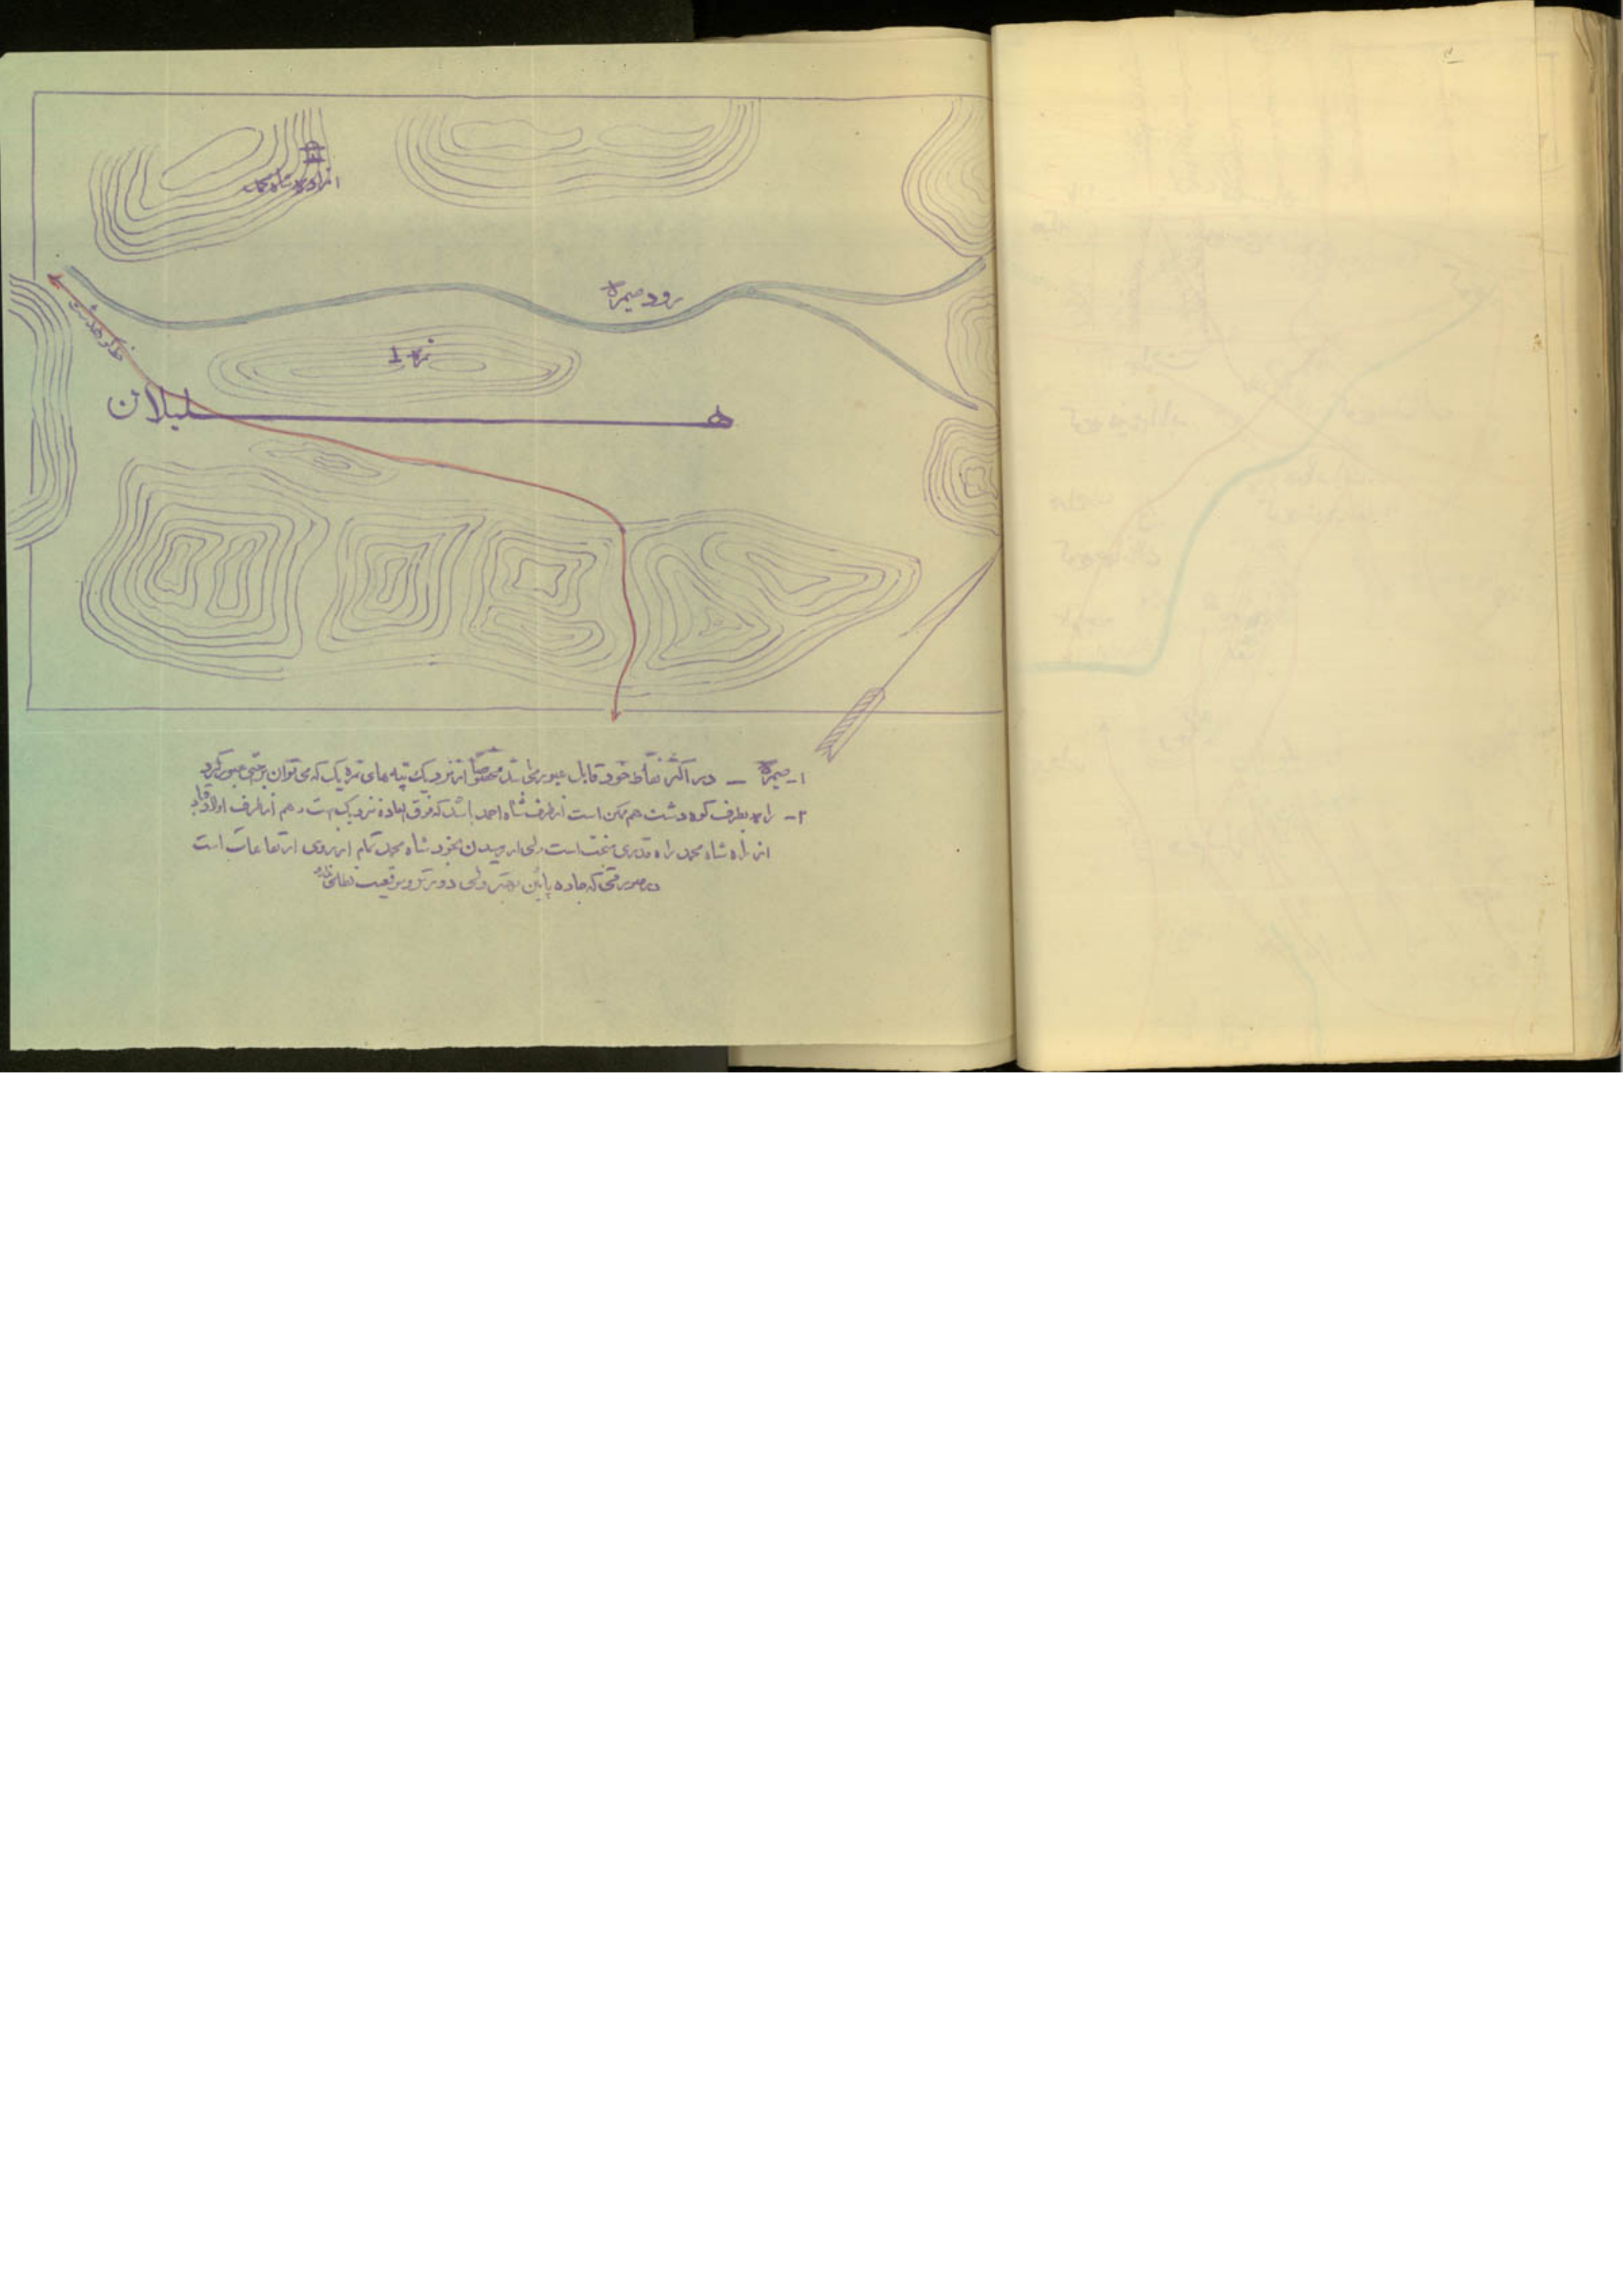 امامزاده شاه محمد
رود صیمره
خط کوهدشت
نمره 1
هلیلان
۱- صیمره – در اکثر نقاط خود قابل عبور می باشد مخصوصاً از نزدیک تپه های نمره یک که می توان براحتی عبور کرد
۲- راه بطرف کوه دشت هم ممکن است از طرف شاه احمد باشد که فوق العاده نزدیک است و هم از طرف اولاد قباد
از راه شاه محمد راه قدری سخت است ولی از رسیدن بخود شاه محمد تمام از روی ارتفاعات است
در صورتی که جاده پائین بهتر ولی دورتر و موقعیت نظامی ندارد